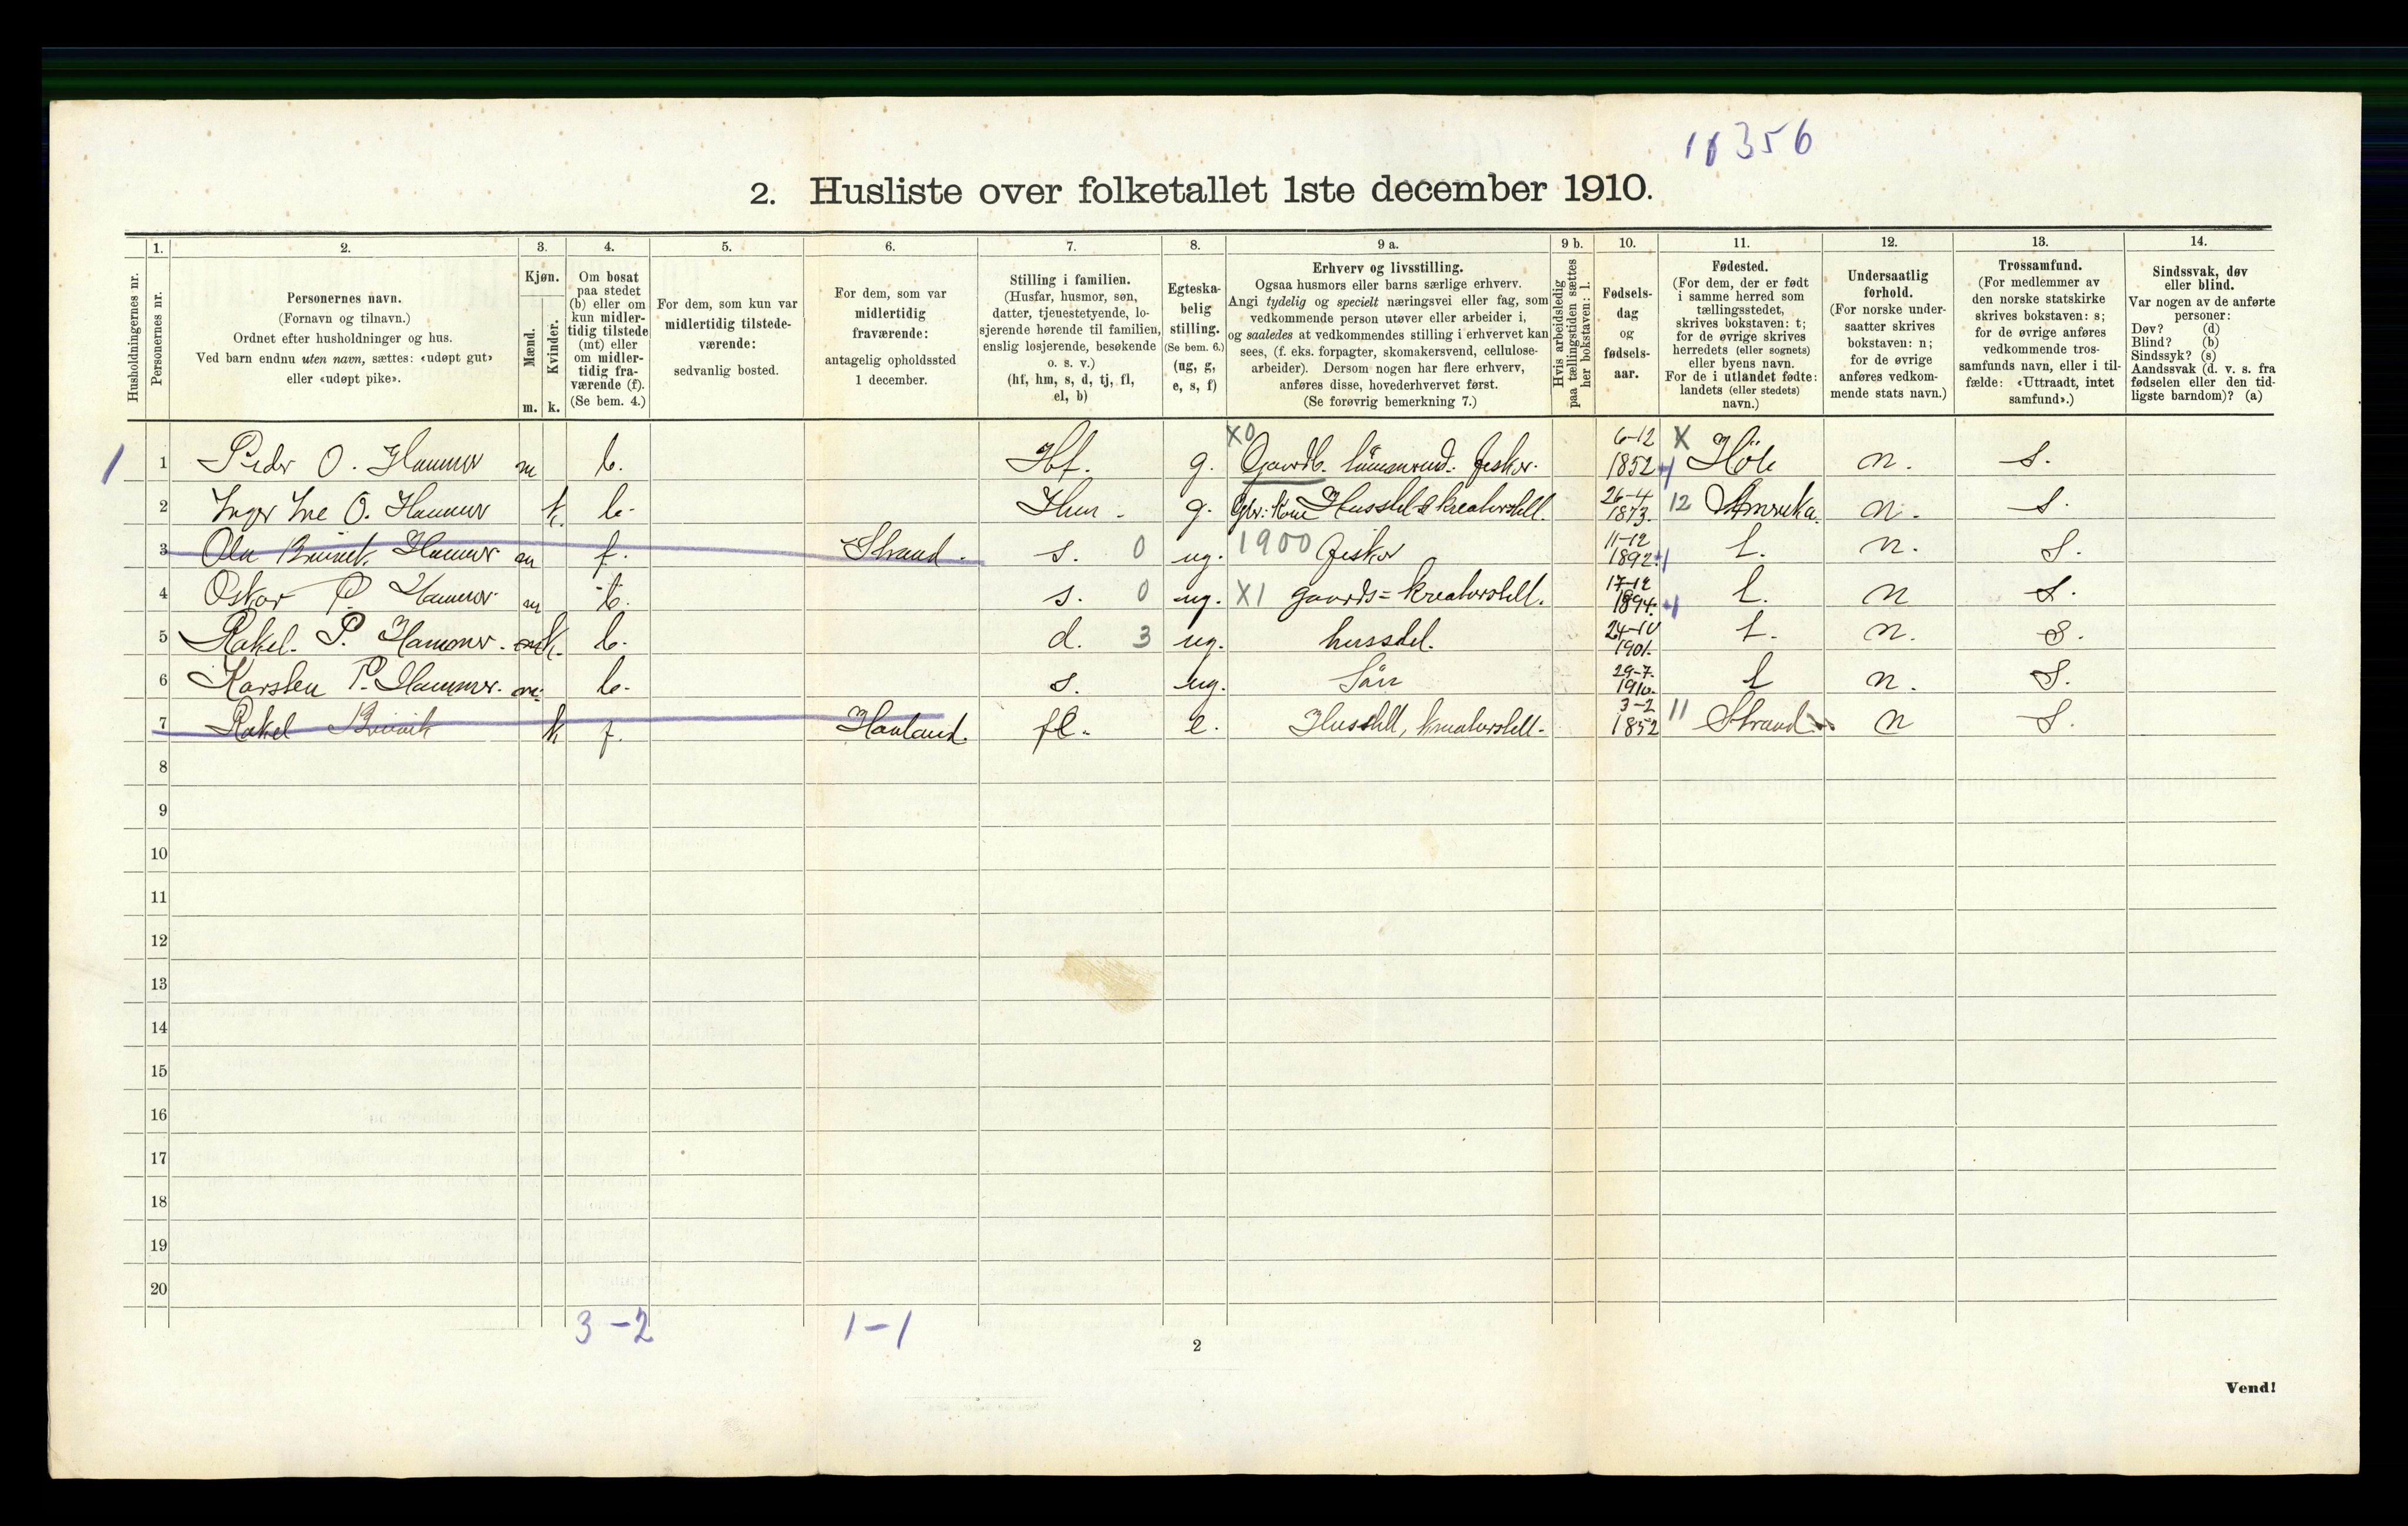 11356
2. Husliste over folketallet 1ste december 1910.
Husholdningernes nr.
1.
Personernes nr.
2.
Personernes navn.
(Fornavn og tilnavn.)
Ordnet efter husholdninger og hus.
Ved barn endnu uten navn, sættes: «udøpt gut»
eller «udøpt pike».
3.
Kjøn.
Mænd.
Kvinder.
m. k.
4.
Om bosat
paa stedet
(b) eller om
kun midler-
tidig tilstede
(mt) eller
om midler-
tidig fra-
værende (f).
(Se bem. 4.)
5.
For dem, som kun var
midlertidig tilstede-
værende:
sedvanlig bosted.
6.
For dem, som var
midlertidig
fraværende:
antagelig opholdssted
1 december.
7.
Stilling i familien.
(Husfar, husmor, søn,
datter, tjenestetyende, lo-
sjerende hørende til familien,
enslig losjerende, besøkende
o. s. v.)
(hf, hm, s, d, tj, fl,
el, b)
8.
Egteska-
belig
stilling.
(Se bem. 6.)
(ug, g,
e, s, f)
9 a.
Erhverv og livsstilling.
Ogsaa husmors eller barns særlige erhverv.
Angi tydelig og specielt næringsvei eller fag, som
vedkommende person utøver eller arbeider i,
og saaledes at vedkommendes stilling i erhvervet kan
sees, (f. eks. forpagter, skomakersvend, cellulose-
arbeider). Dersom nogen har flere erhverv,
anføres disse, hovederhvervet først.
(Se forøvrig bemerkning 7.)
9 b.
Hvis arbeidsledig
paa tællingstiden sættes
her bokstaven: l.
10.
Fødsels-
dag
og
fødsels-
aar.
11.
Fødested.
(For dem, der er født
i samme herred som
tællingsstedet,
skrives bokstaven: t;
for de øvrige skrives
herredets (eller sognets)
eller byens navn.
For de i utlandet fødte:
landets (eller stedets)
navn.)
12.
Undersaatlig
forhold.
(For norske under-
saatter skrives
bokstaven: n;
for de øvrige
anføres vedkom-
mende stats navn.)
13.
Trossamfund.
(For medlemmer av
den norske statskirke
skrives bokstaven: s;
for de øvrige anføres
vedkommende tros-
samfunds navn, eller i til-
fælde: «Uttraadt, intet
samfund».)
14.
Sindssvak, døv
eller blind.
Var nogen av de anførte
personer:
Døv? (d)
Blind? (b)
Sindssyk? (s)
Aandssvak (d. v. s. fra
fødselen eller den tid-
ligste barndom)? (a)
1 1 Peder O. Hammer m b. Hf. g. X0 Gaardb. fisker. 6-12 1852 X Höle n. s.
2 Inger O. Hammer k. b. Hm. g. Gbr: Kone Husstel & kreaturstell. 26-4 1873. 12 Amerika. n. s.
3 Ole Hammer m f. Strand. s. 0 ug. 1900 fisker 11-12 1892 t. n. s.
4 Oskar P. Hammer m b. s. 0 ug. X1 gaards= kreaturstell. 17-12 1894. t. n s.
5 Rakel. P. Hammer. k. b. d. 3 ug. husstel. 24-10 1901. t. n. s.
6 Karsten P. Hammer. m. b. s. ug. Sön 29-7. 1910. t n. s.
7 Rakel k f. Hauland. fl. e. Husstell, kreaturstell. 3-2 1852 11 Strand n s.
8
9
10
11
12
13
14
15
16
17
18
19
20
3-2 1-1
2
Vend!